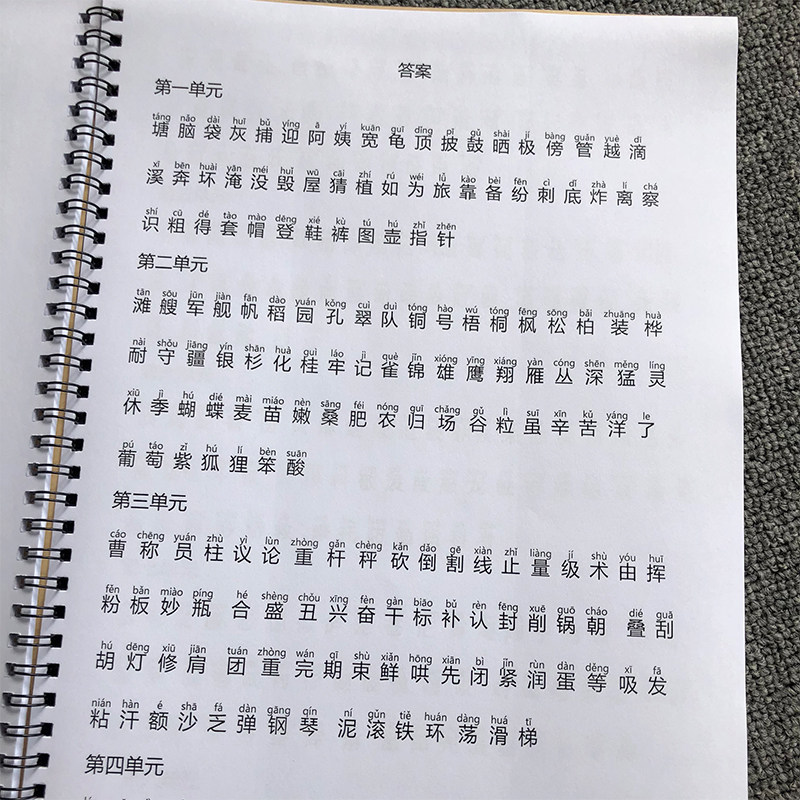 答案
第一单元
táng nǎo dài huī bǔ yíng ā yí kuān guī dǐng pī gǔ shài jí bàng guǎn yuè dī
塘 脑 袋 灰 捕 迎 阿 姨 宽 龟 顶 披 鼓 晒 极 傍 管 越 滴
xī bēn huài yān méi huǐ wū cāi zhí rú wéi lǚ kào bèi fēn cì dǐ zhà lí chá
溪 奔 坏 淹 没 毁 屋 猜 植 如 为 旅 靠 备 纷 刺 底 炸 离 察
shí cū dé tào mào dēng xié kù tú hú zhǐ zhēn
识 粗 得 套 帽 登 鞋 裤 图 壶 指 针
第二单元
tān sōu jūn jiàn fān dào yuán kǒng cuì duì tóng hào wú tóng fēng sōng bǎi zhuāng huà
滩 艘 军 舰 帆 稻 园 孔 翠 队 铜 号 梧 桐 枫 松 柏 装 桦
nài shǒu jiāng yín shān huà guì láo jì què jǐn xióng yīng xiáng yàn cóng shēn měng líng
耐 守 疆 银 杉 化 桂 牢 记 雀 锦 雄 鹰 翔 雁 丛 深 猛 灵
xiū jì hú dié mài miáo nèn sāng féi nóng guī chǎng gǔ lì suī xīn kǔ yáng le
休 季 蝴 蝶 麦 苗 嫩 桑 肥 农 归 场 谷 粒 虽 辛 苦 洋 了
pú táo zǐ hú lí bèn suān
葡 萄 紫 狐 狸 笨 酸
第三单元
cáo chēng yuán zhù yì lùn zhòng gǎn chèng kǎn dǎo gē xiàn zhǐ liàng jí shù yóu huī
曹 称 员 柱 议 论 重 杆 秤 砍 倒 割 线 止 量 级 术 由 挥
fěn bǎn miào píng hé shèng chǒu xīng fèn gàn biāo bǔ rèn fēng xuē guō cháo dié guā
粉 板 妙 瓶 合 盛 丑 兴 奋 干 标 补 认 封 削 锅 朝 叠 刮
hú dēng xiū jiān tuán zhòng wán qī shù xiān hōng xiān bì jǐn rùn dàn děng xī fā
胡 灯 修 肩 团 重 完 期 束 鲜 哄 先 闭 紧 润 蛋 等 吸 发
nián hàn é shā fá dàn gāng qín ní gǔn tiě huán dàng huá tī
粘 汗 额 沙 乏 弹 钢 琴 泥 滚 铁 环 荡 滑 梯
第四单元